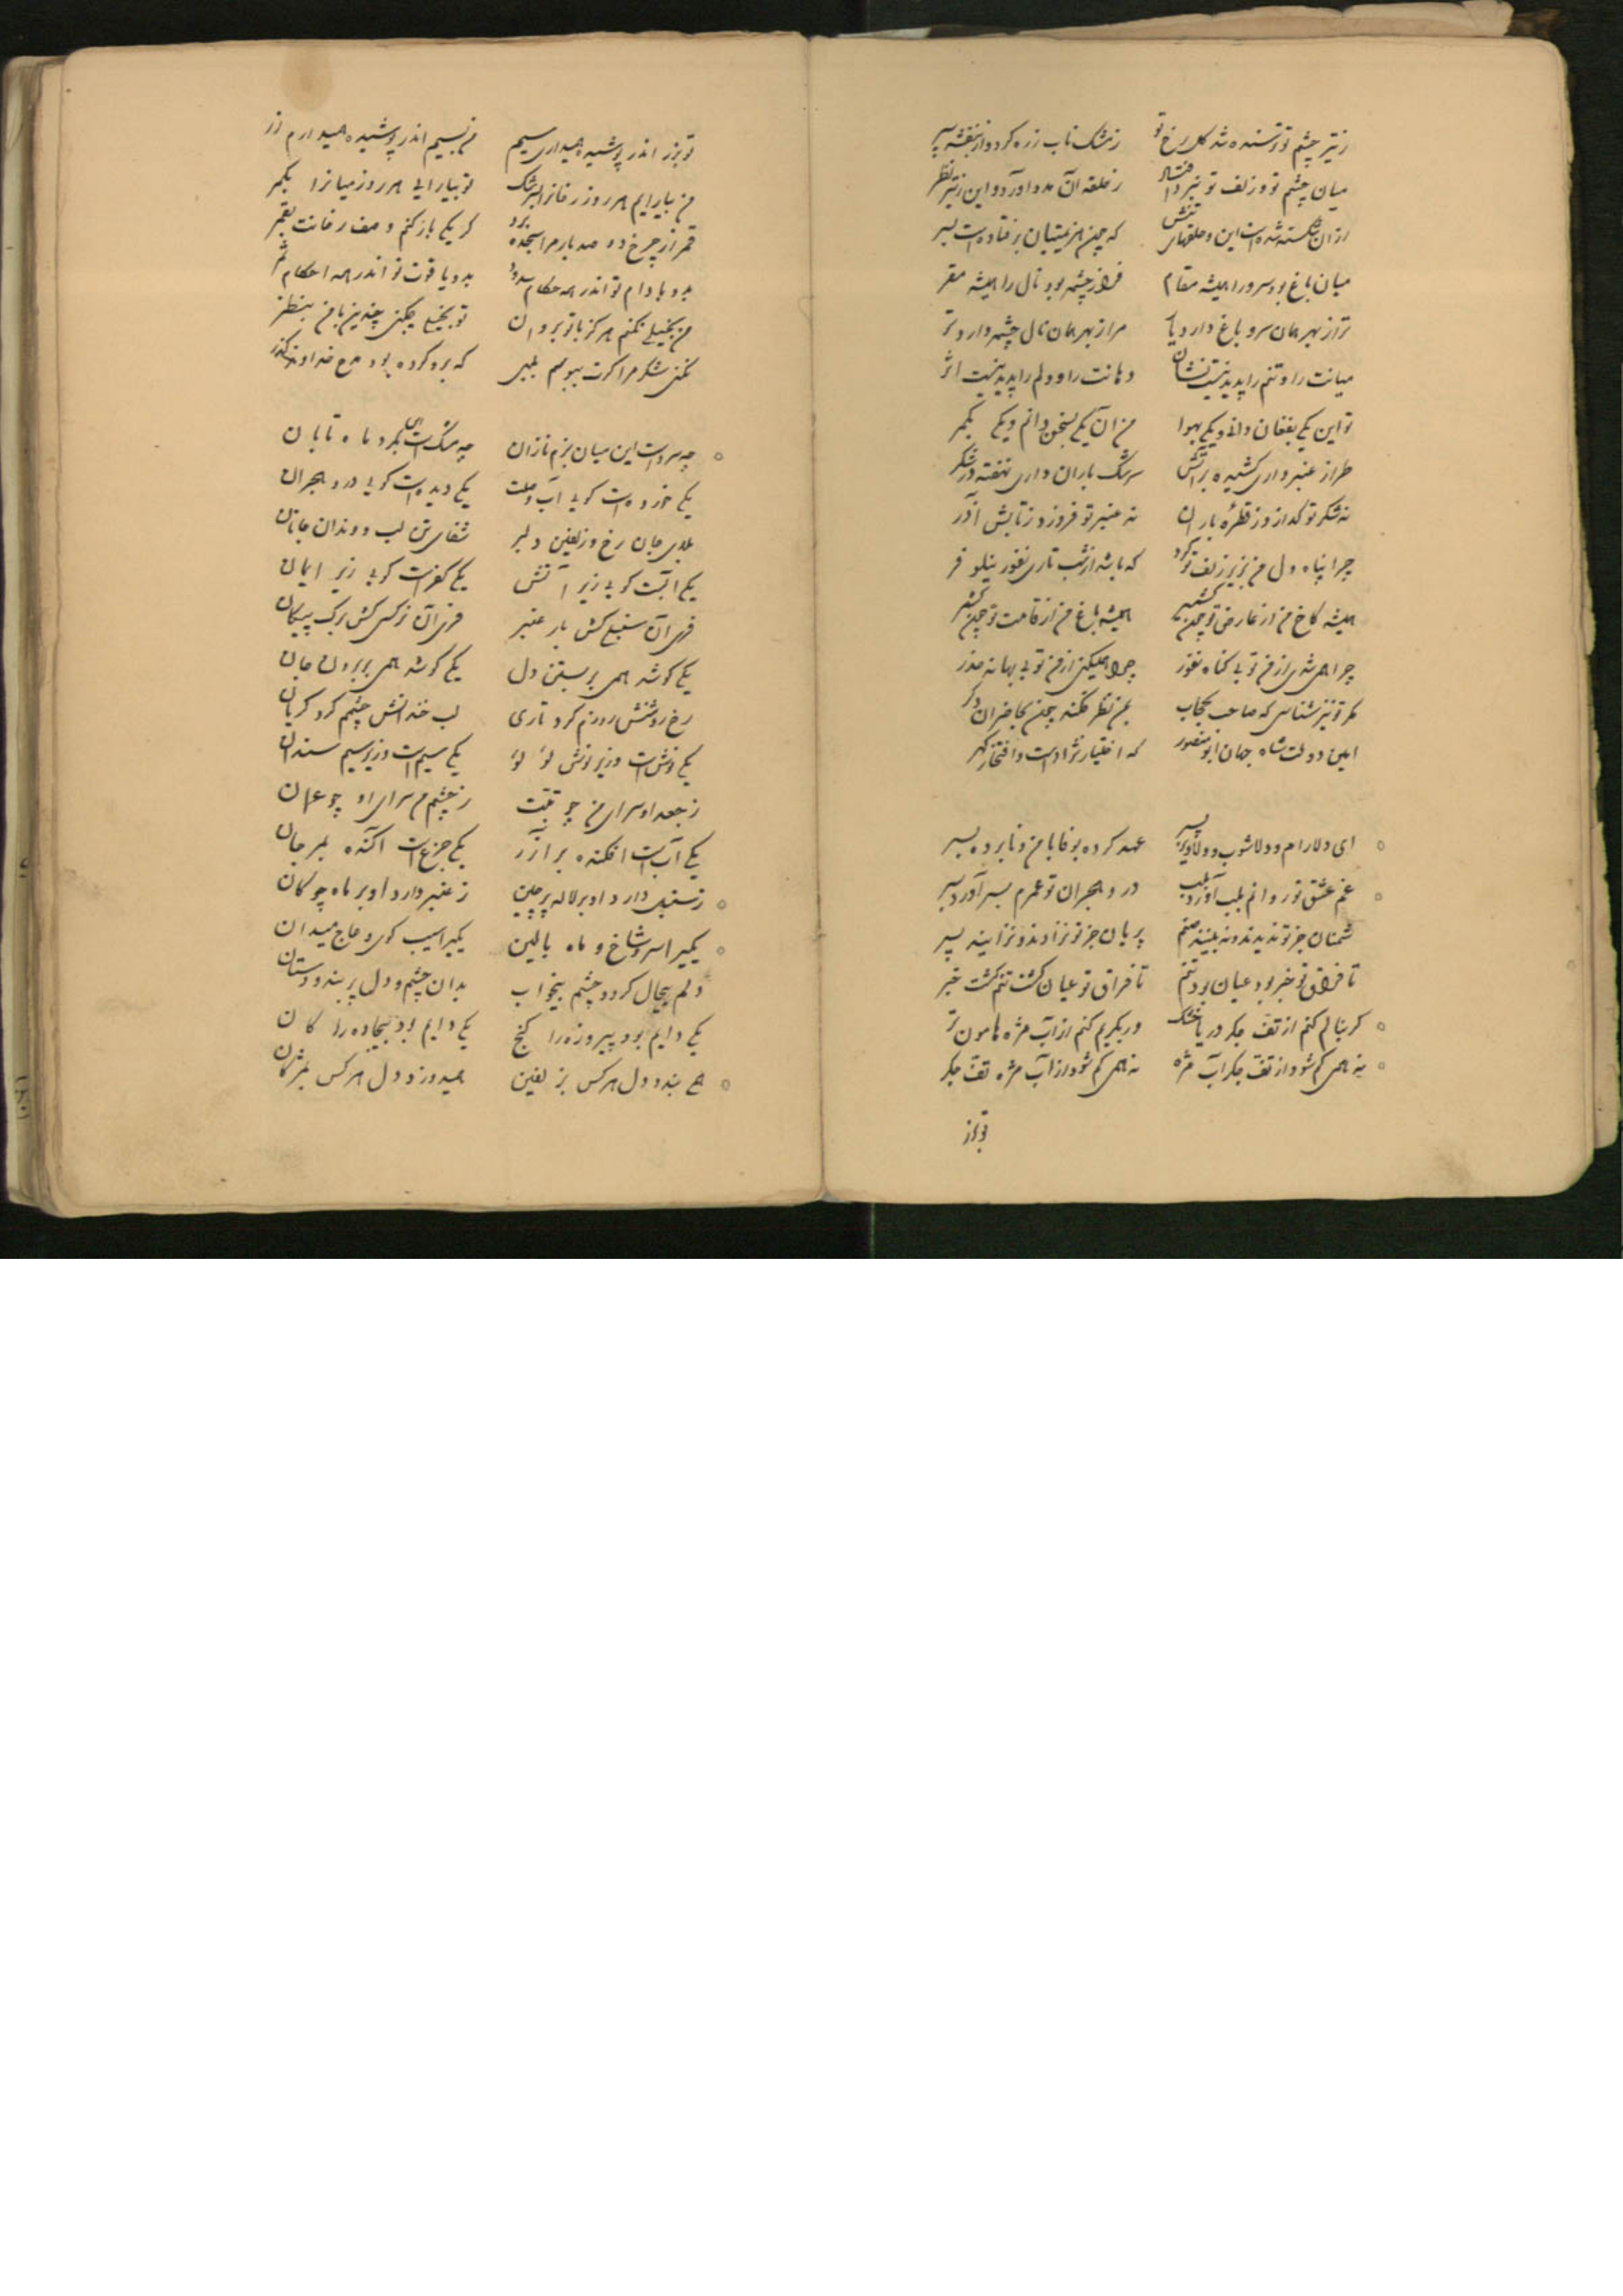 ز تیر چشم تو ترسنده شد گل رخ تو ز مشک ناب زره کرد و از بنفشه سپر
میان چشم تو و زلف تو نبرد افتاد ز حلقه آن مدد آورد و این ز تیر نظر
از آن شکسته شده است این و حلقهای تنش که چون هزیمتیان برفتاده است بسر
میان باغ بود سرو را همیشه مقام فراز چشمه بود نال را همیشه مقر
ترا ز بهر همان سرو باغ دارد پای مرا ز بهر همان نال چشمه دارد تر
میانت را و تنم را پدید نیست نشان دهانت را و دلم را پدید نیست اثر
تو این یکی بفغان دانی و یکی بهوا من آن یکی بسخن دانم و یکی بکمر
طراز عنبر داری کشیده بر آتش سرشک باران داری نهفته در شکر
نه شکر تو گدازد ز قطره باران نه عنبر تو فروزد ز تابش آذر
چرا پناه دل من بزیر زلف تو کرد که باشد از شب تاری نفور نیلوفر
همیشه کاخ من از عارض تو چون کشمیر همیشه باغ من از قامت تو چون کشمر
چرا همی شوی از من تو بی گناه نفور چرا همیکنی از من تو بی بهانه حذر
مگر تو نیز شناسی که صاحب حجاب بمن نظر نکند چون بحاضران دگر
امین دولت شاه جهان ابو منصور که اختیار نژادست و افتخار گهر
ای دلارام و دلاشوب و دلاویز پسر عهد کرده بوفا با من و نابرده بسر
غم عشق تو روانم بلب آورد بلب درد هجران تو عمرم بسر آورد بسر
شمنان جز تو ندیدند و نبینند صنم پریان جز تو نزادند و نزایند پسر
تا فراق تو خبر بود عیان بود تنم تا فراق تو عیان گشت تنم گشت خبر
گر بنالم کنم از تف جگر دریا خشک ور بگریم کنم از آب مژه هامون تر
نه همی کم شود از تف جگر آب مژه نه همی کم شود از آب مژه تف جگر
تو بزر
تو بزر اندر پوشیده همیداری سیم من بسیم اندر پوشیده همیدارم زر
من بیارایم هر روز رخانرا بسرشک تو بیارایی هر روز میانرا بکمر
قمر از چرخ دو صد بار مرا سجده برد گر یکی باز کنم وصف رخانت بقمر
بدو بادام تو اندر همه حکام بدو یاقوت تو اندر همه احکام
من بخیلی نکنم هرگز با تو بروان تو بخیلی چکنی چندین با من بنظر
نکنی شکر مرا گرت ببوسم بلبی که برو کرده بود مدح خداوند گذر
چه سروست این میان بزم نازان چه مشکست این بگرد ماه تابان
یکی خورده است گویی آب وصلت یکی دیده است گویی درد هجران
بلای جان رخ و زلفین دلبر شفای تن لب و دندان جانان
یکی آبست گویی زیر آتش یکی کفرست گویی زیر ایمان
فری آن سنبلی کش بار عنبر فری آن نرگسی کش برگ پیکان
یکی کوشد همی بر بستن دل یکی کوشد همی بر بردن جان
رخ روشنش روزم کرد تاری لب خندانش چشمم کرد گریان
یکی نوش است و زیر نوش لؤلؤ یکی سیم است و زیر سیم سندان
ز جعد او سرای من چو تبت ز چشم من سرای او چو عمان
یکی آب است افکنده بر آذر یکی جزع است آکنده بمرجان
ز سنبل دارد او بر لاله پرچین ز عنبر دارد او بر ماه چوگان
یکیرا سرو شاخ و ماه بالین یکیرا سیب گوی و عاج میدان
دلم بیجال کرد و چشم بیخواب بدان چشم و دل پر بند و دستان
یکی دایم بود پیروزه را گنج یکی دایم بود بیجاده را کان
همی بندد دل هر کس بزلفین همیدوزد دل هر کس بمژگان